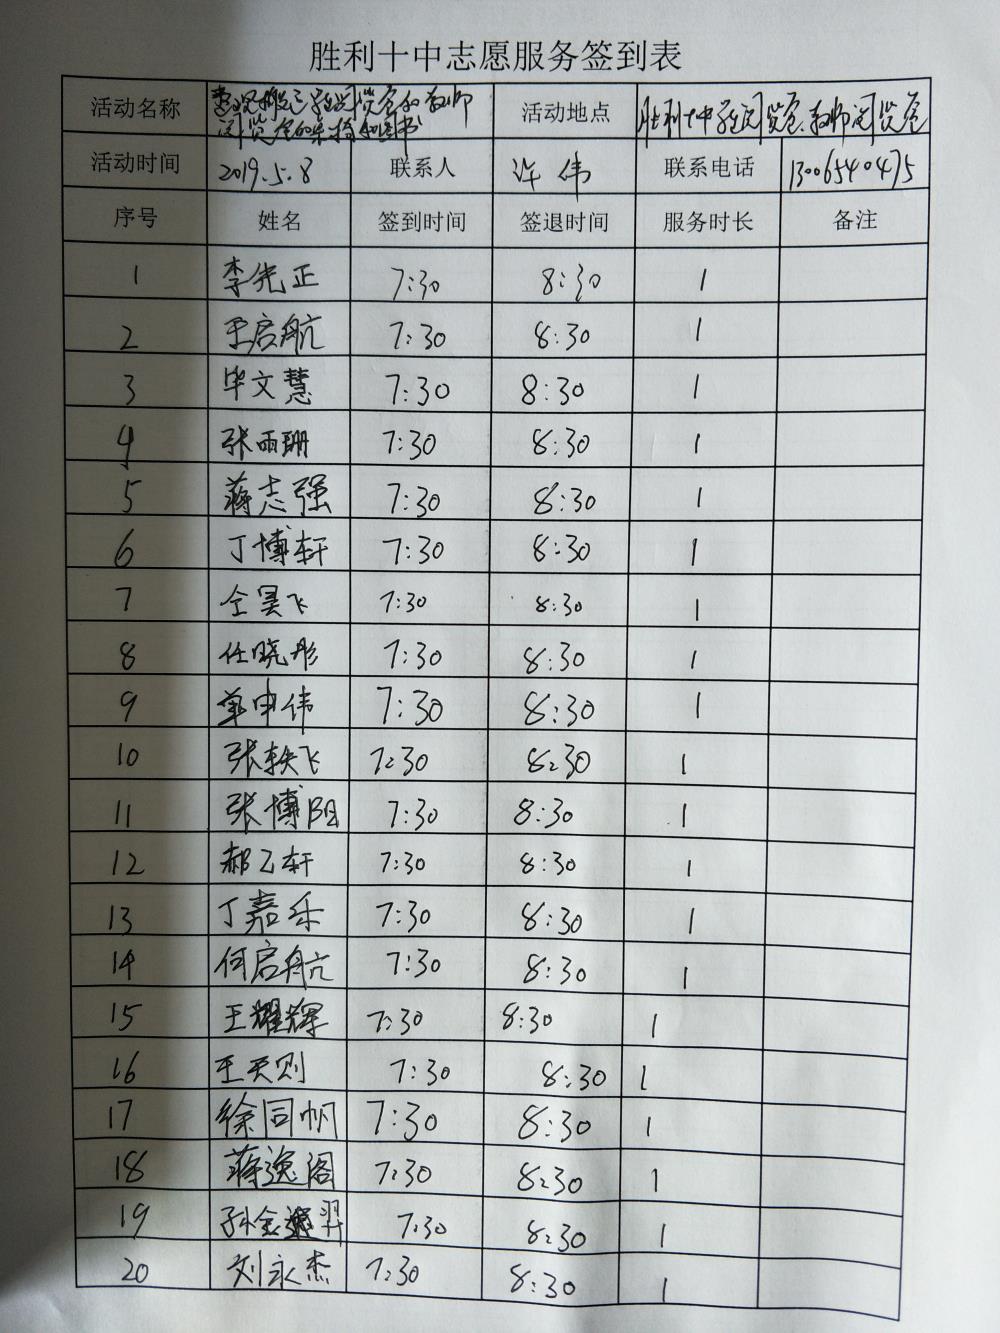 胜利十中志愿服务签到表
活动名称 整理搬运学生阅览室和教师 活动地点 胜利十中学生阅览室、教师阅览室
阅览室的 和图书
活动时间 2019.5.8 联系人 许伟 联系电话 13006540475
序号 姓名 签到时间 签退时间 服务时长 备注
1 李光正 7:30 8:30 1
2 王启航 7:30 8:30 1
3 毕文慧 7:30 8:30 1
4 张雨珊 7:30 8:30 1
5 蒋志强 7:30 8:30 1
6 丁博轩 7:30 8:30 1
7 仝昊飞 7:30 8:30 1
8 任晓彤 7:30 8:30 1
9 单申伟 7:30 8:30 1
10 张轶飞 7:30 8:30 1
11 张博阳 7:30 8:30 1
12 郝乙轩 7:30 8:30 1
13 丁嘉乐 7:30 8:30 1
14 何启航 7:30 8:30 1
15 王耀辉 7:30 8:30 1
16 王天则 7:30 8:30 1
17 徐同帆 7:30 8:30 1
18 蒋逸阁 7:30 8:30 1
19 孙金羿 7:30 8:30 1
20 刘永杰 7:30 8:30 1